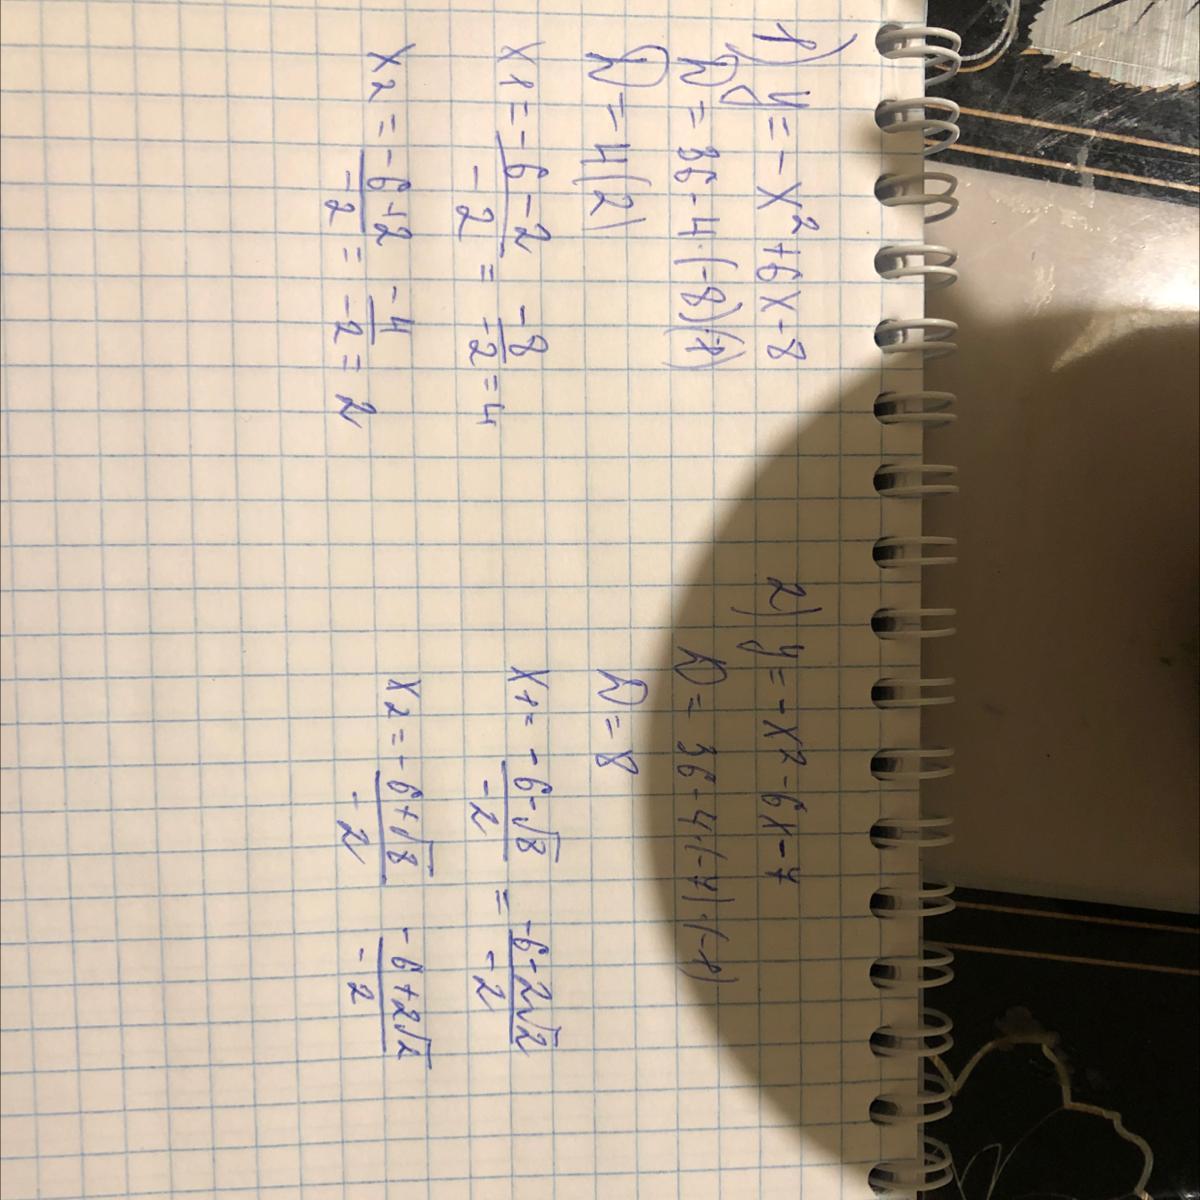 1) y = -x² + 6x - 8
D = 36 - 4·(-8)(-1)
D = 4(2)
x1 = -6-2/-2 = -8/-2 = 4
x2 = -6+2/-2 = -4/-2 = 2
2) y = -x² - 6x - 7
D = 36 - 4·(-7)·(-1)
D = 8
x1 = -6-√8/-2 = -6-2√2/-2
x2 = -6+√8/-2 -6+2√2/-2